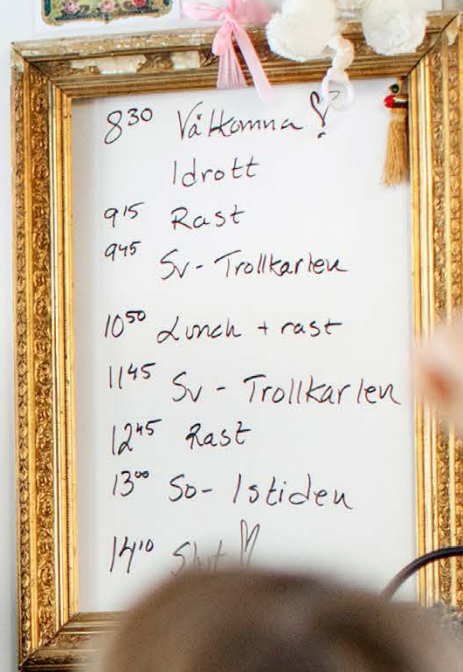 8³⁰ Välkomna!
Idrott
9¹⁵ Rast
9⁴⁵ Sv - Trollkarlen
10⁵⁰ Lunch + rast
11⁴⁵ Sv - Trollkarlen
12⁴⁵ Rast
13⁰⁰ So - Istiden
14¹⁰ Slut ♡